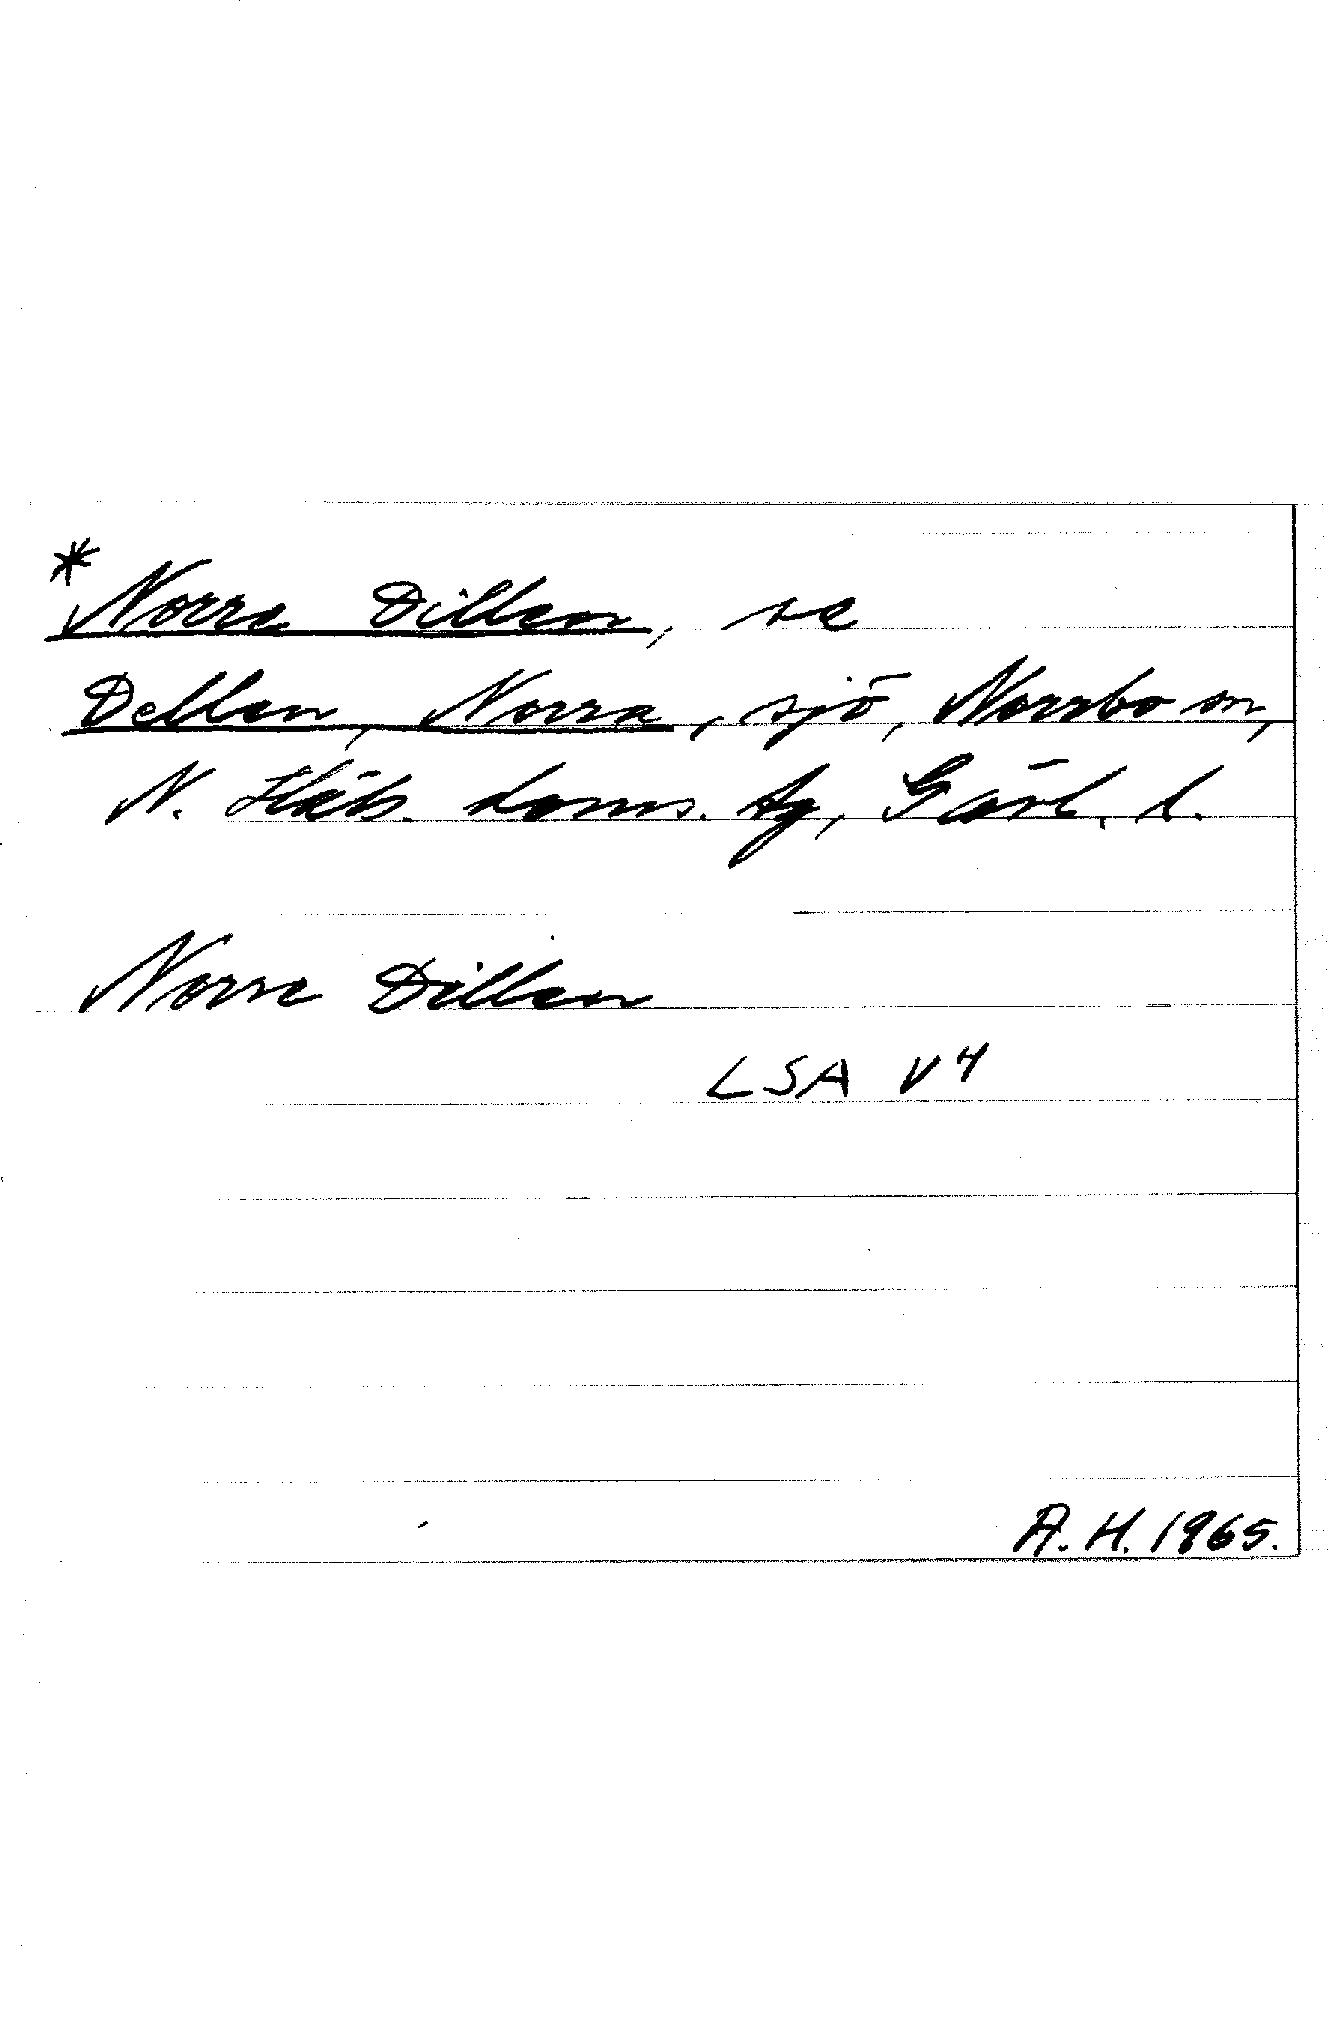 * Norra Dillen, se
Dellen, Norra, sjö, Norrbo sn,
N. Häls. doms. tg, Gävl. l.
Norra Dillen
LSA V4
A.H. 1965.